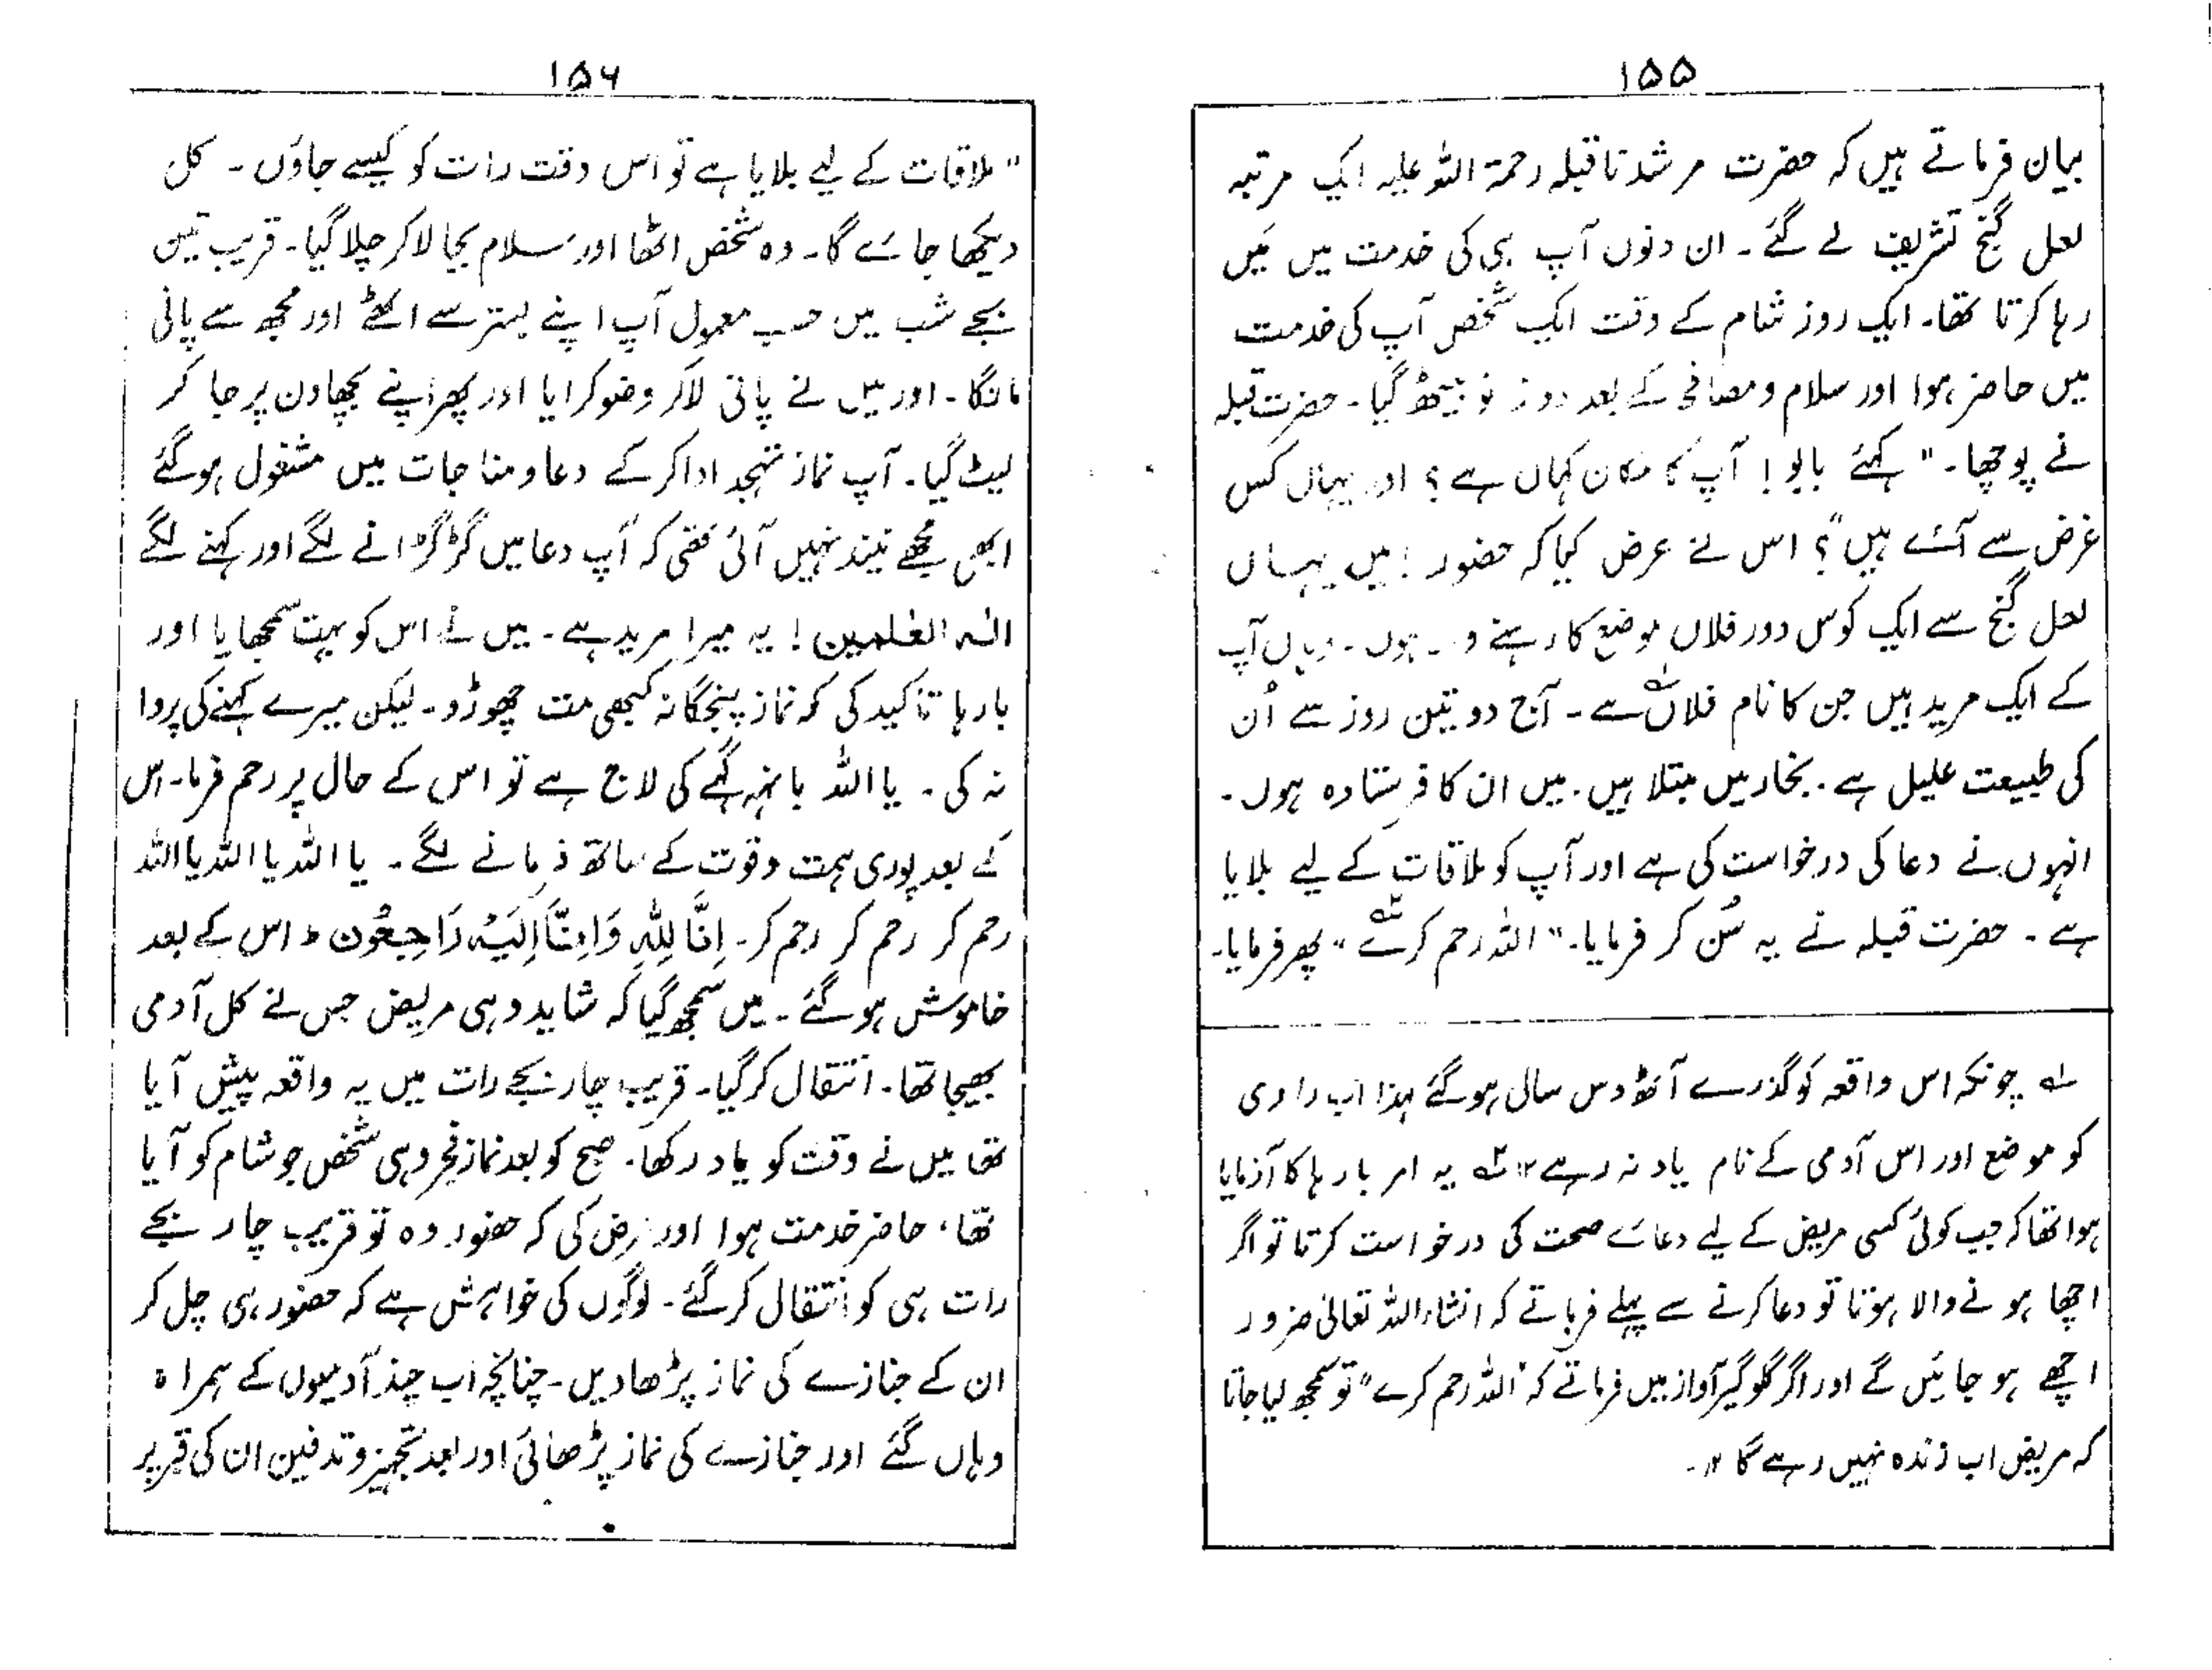 ۱۵۵
بیان فرماتے ہیں کہ حضرت مرشدنا قبلہ رحمۃ اللہ علیہ ایک مرتبہ
لعل گنج تشریف لے گئے۔ ان دنوں آپ ہی کی خدمت میں مَیں
رہا کرتا تھا۔ ایک روز شام کے وقت ایک شخص آپ کی خدمت
میں حاضر ہوا اور سلام و مصافحہ کے بعد دو زانو بیٹھ گیا۔ حضرت قبلہ
نے پوچھا۔ " کہئے بابو! آپ کا مکان کہاں ہے؟ اور یہاں کس
غرض سے آئے ہیں"؟ اس نے عرض کیا کہ حضور! میں یہاں
لعل گنج سے ایک کوس دور فلاں موضع کا رہنے ہوں۔ وہاں آپ
کے ایک مرید ہیں جن کا نام فلاں ہے۔ آج دو تین روز سے اُن
کی طبیعت علیل ہے۔ بخار میں مبتلا ہیں۔ میں ان کا فرستادہ ہوں۔
انہوں نے دعا کی درخواست کی ہے اور آپ کو ملاقات کے لیے بلایا
ہے۔ حضرت قبلہ نے یہ سُن کر فرمایا۔ " اللہ رحم کرے " پھر فرمایا۔
لے چونکہ اس واقعہ کو گذرے آٹھ دس سال ہو گئے لہذا اب راوی
کو موضع اور اس آدمی کے نام یاد نہ رہے ۱۲ یہ امر بارہا کا آزمایا
ہوا تھا کہ جب کوئی کسی مریض کے لیے دعائے صحت کی درخواست کرتا تو اگر
اچھا ہونے والا ہوتا تو دعا کرنے سے پہلے فرماتے کہ انشاء اللہ تعالیٰ ضرور
اچھے ہو جائیں گے اور اگر گلوگیر آواز میں فرماتے کہ "اللہ رحم کرے" تو سمجھ لیا جاتا
کہ مریض اب زندہ نہیں رہے گا ۱۲۔
۱۵۶
" ملاقات کے لیے بلایا ہے تو اس وقت رات کو کیسے جاؤں۔ کل
دیکھا جائے گا۔ وہ شخص اٹھا اور سلام بجا لا کر چلا گیا۔ قریب تین
بجے شب میں حسب معمول آپ اپنے بستر سے اٹھے اور مجھ سے پانی
مانگا۔ اور میں نے پانی لا کر وضو کرایا اور پھر اپنے بچھاون پر جا کر
لیٹ گیا۔ آپ نماز تہجد ادا کر کے دعا و مناجات میں مشغول ہو گئے
ابھی مجھے نیند نہیں آئی تھی کہ آپ دعا میں گڑگڑانے لگے اور کہنے لگے
الٰہ العٰلمین! یہ میرا مرید ہے۔ میں نے اس کو بہت سمجھایا اور
بارہا تاکید کی کہ نماز پنجگانہ کبھی مت چھوڑو۔ لیکن میرے کہنے کی پروا
نہ کی۔ یا اللہ بانہہ گہے کی لاج ہے تو اس کے حال پر رحم فرما۔ اس
کے بعد پوری ہمت و قوت کے ساتھ فرمانے لگے۔ یا اللہ یا اللہ یا اللہ
رحم کر رحم کر رحم کر۔ اِنَّا لِلّٰہِ وَاِنَّا اِلَیْہِ رَاجِعُوْن ط اس کے بعد
خاموش ہو گئے۔ میں سمجھ گیا کہ شاید وہی مریض جس نے کل آدمی
بھیجا تھا۔ انتقال کر گیا۔ قریب چار بجے رات میں یہ واقعہ پیش آیا
تھا میں نے وقت کو یاد رکھا۔ صبح کو بعد نماز فجر وہی شخص جو شام کو آیا
تھا، حاضر خدمت ہوا اور عرض کی کہ حضور وہ تو قریب چار بجے
رات ہی کو انتقال کر گئے۔ لوگوں کی خواہش ہے کہ حضور ہی چل کر
ان کے جنازے کی نماز پڑھا دیں۔ چنانچہ آپ چند آدمیوں کے ہمراہ
وہاں گئے اور جنازے کی نماز پڑھائی اور بعد تجہیز و تدفین ان کی قبر پر